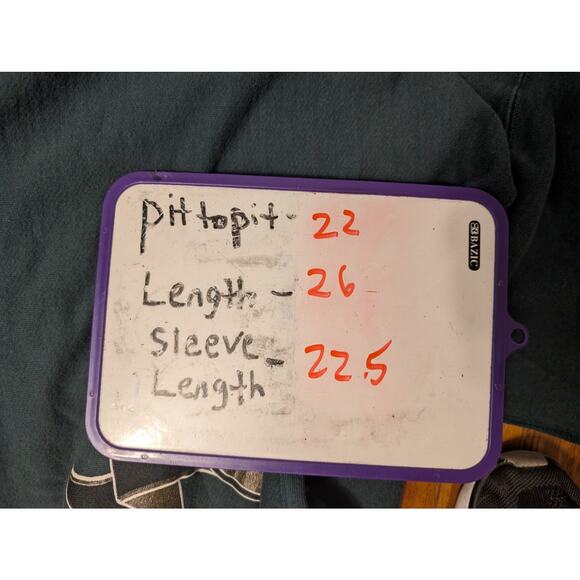 pit to pit - 22
Length - 26
Sleeve - 22.5
Length
BAZIC